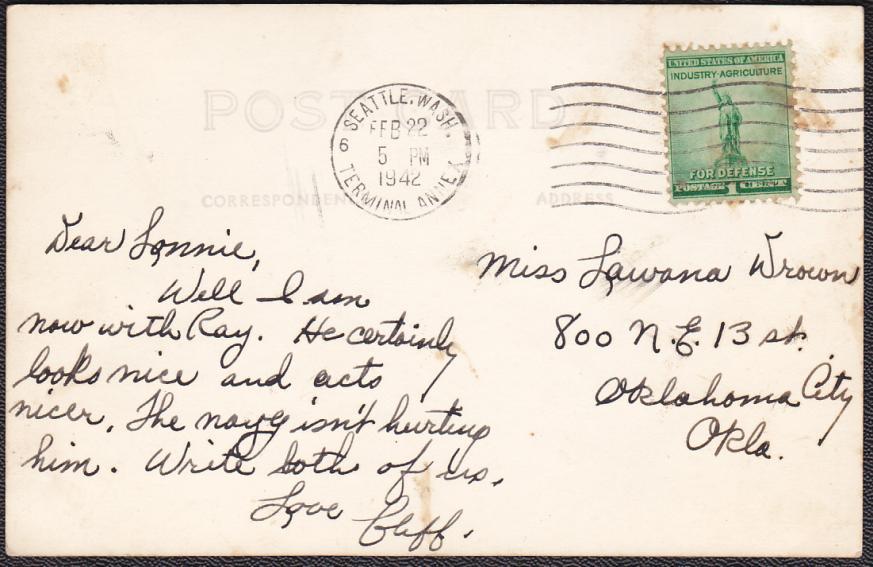 POST CARD
SEATTLE, WASH.
6
FEB 22
5 PM
1942
TERMINAL ANNEX
UNITED STATES OF AMERICA
INDUSTRY·AGRICULTURE
FOR DEFENSE
POSTAGE 1 CENT
CORRESPONDENCE
ADDRESS
Dear Lonnie,
Well I am
now with Ray. He certainly
looks nice and acts
nicer. The navy isn't hurting
him. Write both of us.
Love Cliff.
Miss Lawana Drown
800 N.E. 13 st.
Oklahoma City
Okla.